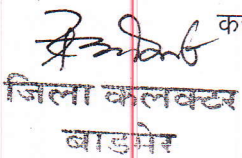 क
जिला कलक्टर
बाडमेर